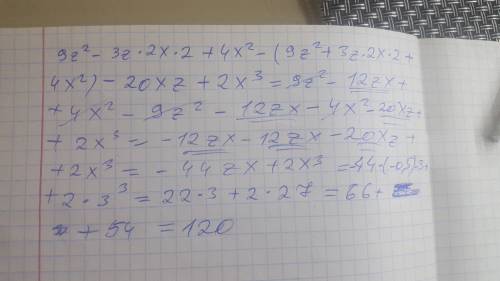 9z² - 3z·2x·2 + 4x² - (9z² + 3z·2x·2 +
4x²) - 20xz + 2x³ = 9z² - 12zx +
+ 4x² - 9z² - 12zx - 4x² - 20xz +
+ 2x³ = -12zx - 12zx - 20xz +
+ 2x³ = - 44zx + 2x³ = -44·(-0,5)·3 +
+ 2·3³ = 22·3 + 2·27 = 66 +
+ 54 = 120